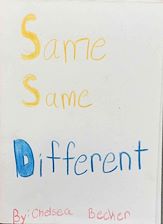 Same
Same
Different
By: Chelsea Becker